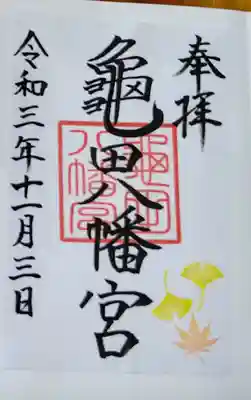 奉拝
龜田八幡宮
龜田八幡宮
令和三年十一月三日